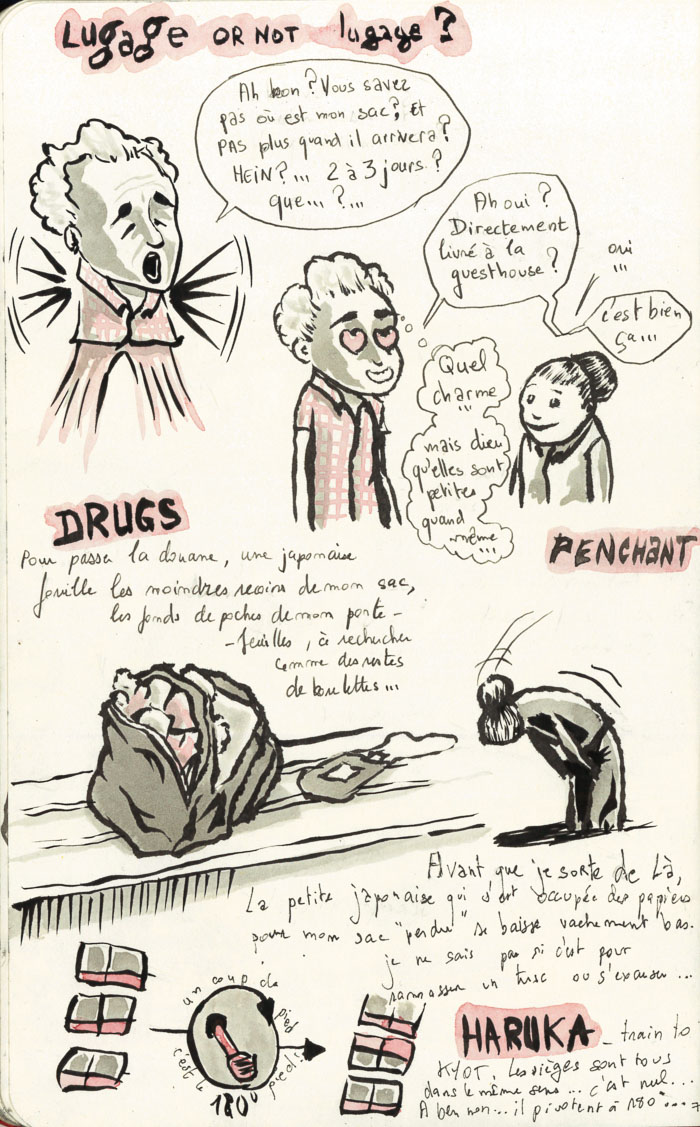 Lugage OR NOT lugage ?
Ah bon ? Vous savez
pas où est mon sac ? Et
PAS plus quand il arrivera ?
HEIN ? ... 2 à 3 jours ?
que... ? ...
Ah oui ?
Directement
livré à la
guesthouse ?
oui
...
c'est bien
ça...
Quel
charme
...
mais dieu
qu'elles sont
petites
quand
même
...
DRUGS
Pour passer la douane, une japonaise
fouille les moindres recoins de mon sac,
les fonds de poches de mon porte-
-feuilles, à rechercher
comme des restes
de boulettes...
PENCHANT
Avant que je sorte de là,
La petite japonaise qui s'est occupée des papiers
pour mon sac "perdu" se baisse vachement bas.
je ne sais pas si c'est pour
ramasser un truc ou s'excuser...
un coup de
pied
c'est le
pied !
180°
HARUKA - train to
KYOT. Les sièges sont tous
dans le même sens... c'est nul...
A ben non... il pivotent à 180°...